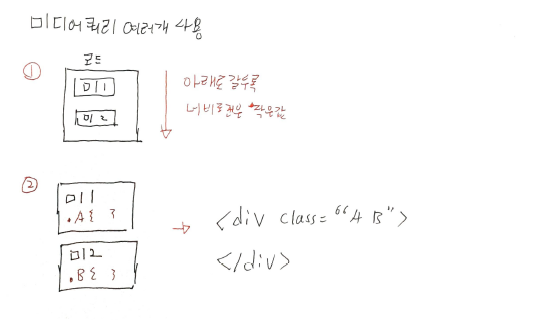 미디어쿼리 여러개 사용
코드
①
미1
미2
아래로 갈수록
너비조건은 작은값
②
미1
.A{ }
미2
.B{ }
→ <div class="A B">
</div>